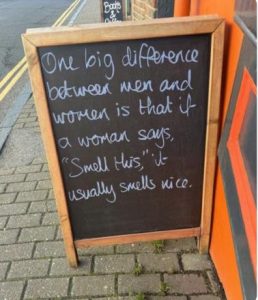 One big difference
between men and
women is that if
a woman says,
"Smell this," it
usually smells nice.